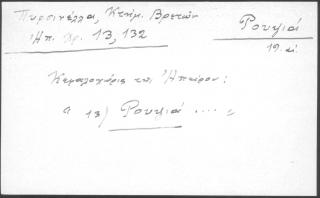 Πυρσινέλλα, Κτημ. Βρετών
Ἠπ. Χρ. 13, 132
Ρουψιά
19. αἰ.
Κεφαλοχώρια τῆς Ἠπείρου:
13) Ρουψιά .... "